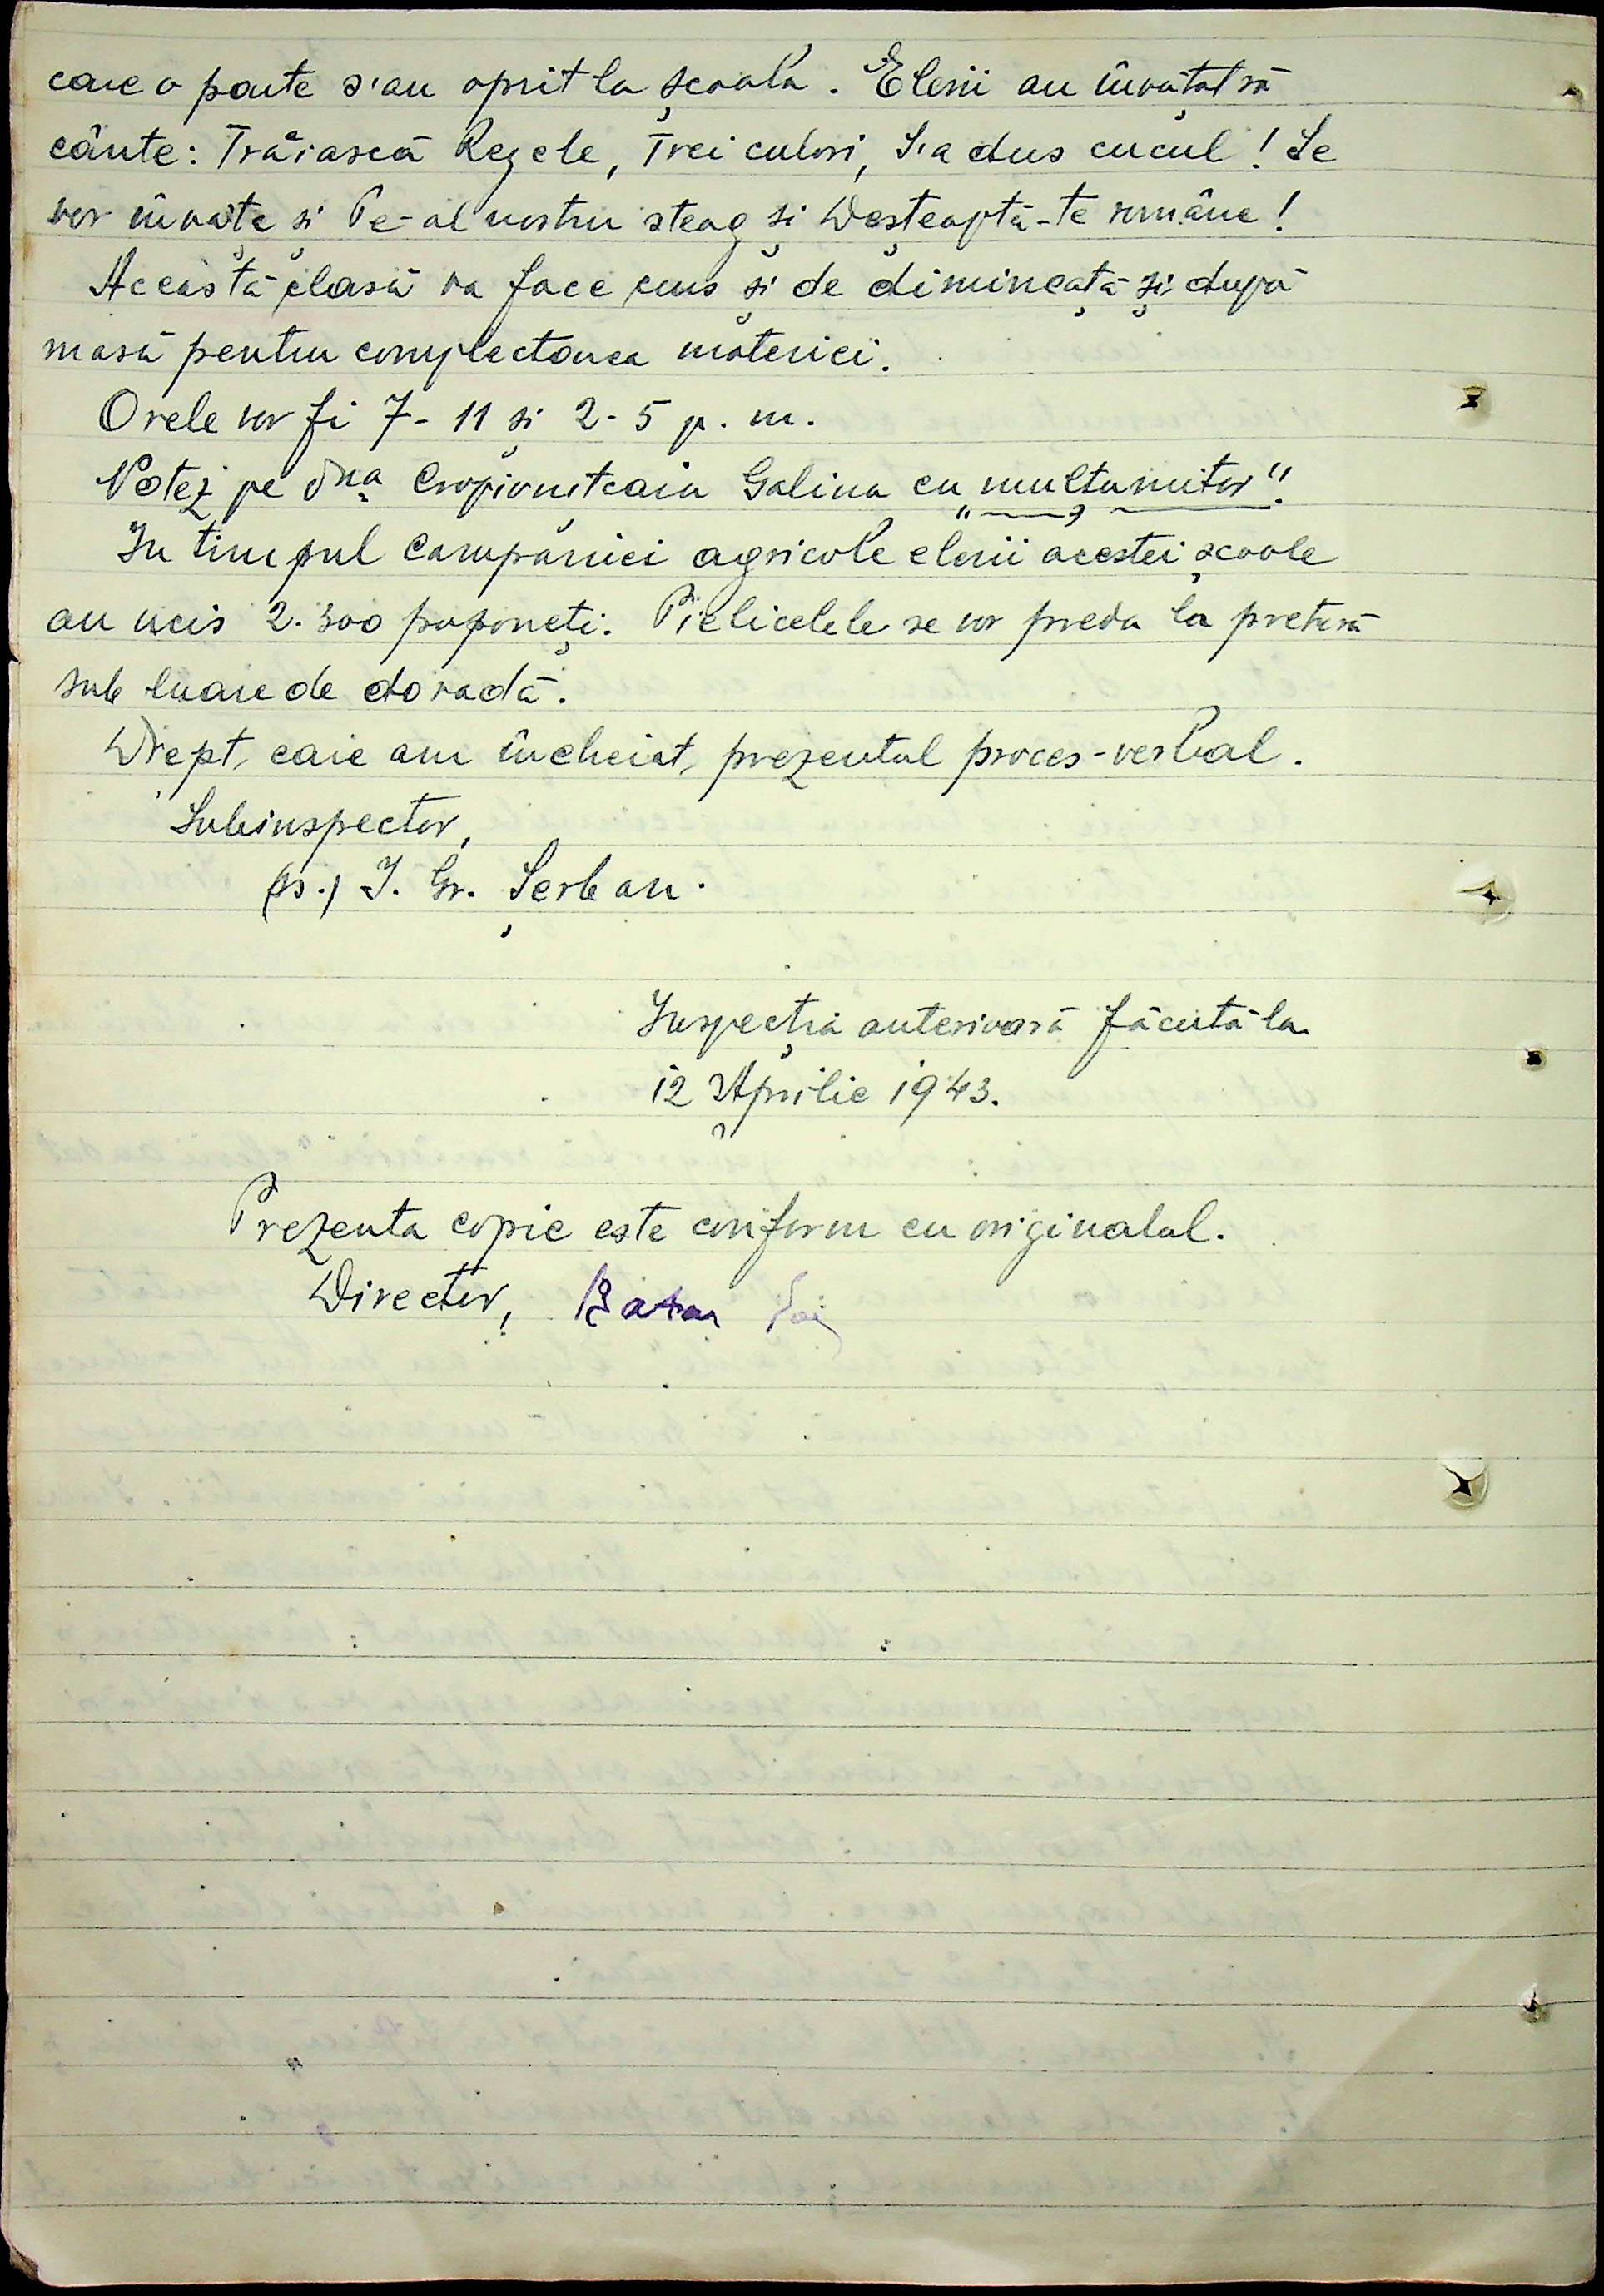 care o parte s'au oprit la școală. Elevii au învățat să
cânte: Trăiască Regele, Trei culori, S'a dus cucul! Se
vor învăța și Pe-al nostru steag și Deșteaptă-te române!
Această clasă va face curs și de dimineață și după
masă pentru complectarea materiei.
Orele vor fi 7-11 și 2-5 p.m.
Notez pe dna Cropivnițcaia Galina cu „mulțumitor".
In timpul campaniei agricole elevii acestei școale
au ucis 2.300 popâneți. Pielicelele se vor preda la pretură
sub luare de dovadă.
Drept care am încheiat, prezentul proces-verbal.
Subinspector,
(ss.) I. Gr. Șerban.
Inspecția anterioară făcută la
12 Aprilie 1943.
Prezenta copie este conform cu originalul.
Director,